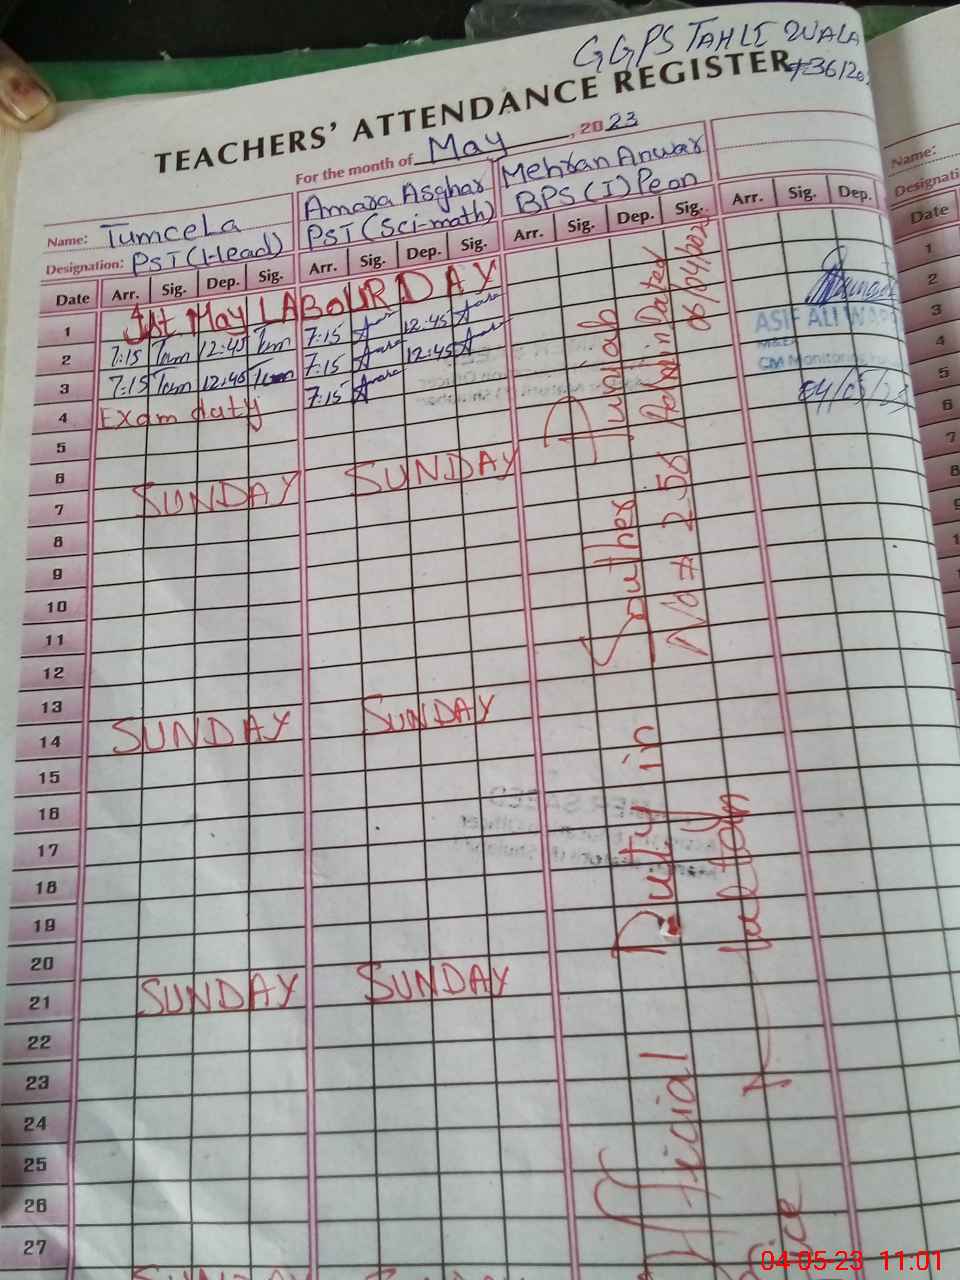 GGPS TAHLI WALA
TEACHERS' ATTENDANCE REGISTER
For the month of May, 2023
Name: Tumceela Amara Asghar Mehran Anwar
Designation: PST (Head) PST (Sci-math) BPS (I) Peon
Date Arr. Sig. Dep. Sig. Arr. Sig. Dep. Sig. Arr. Sig. Dep. Sig. Arr. Sig. Dep.
1 1st May LABOUR DAY
2 7:15 Tum 12:45 Tum 7:15 12:45
3 7:15 Tum 12:45 Tum 7:15 12:45
4 Exam duty 7:15
5
6
7 SUNDAY SUNDAY
8
9
10
11
12
13
14 SUNDAY SUNDAY
15
16
17
18
19
20
21 SUNDAY SUNDAY
22
23
24
25
26
27
SUNDAY SUNDAY
Official Duty in Souther Punjab
No # 258
Dated
ASIF ALI
CM Monitoring
04/05/23
Name:
Date
1
2
3
4
5
6
7
8
9
04-05-23 11:01